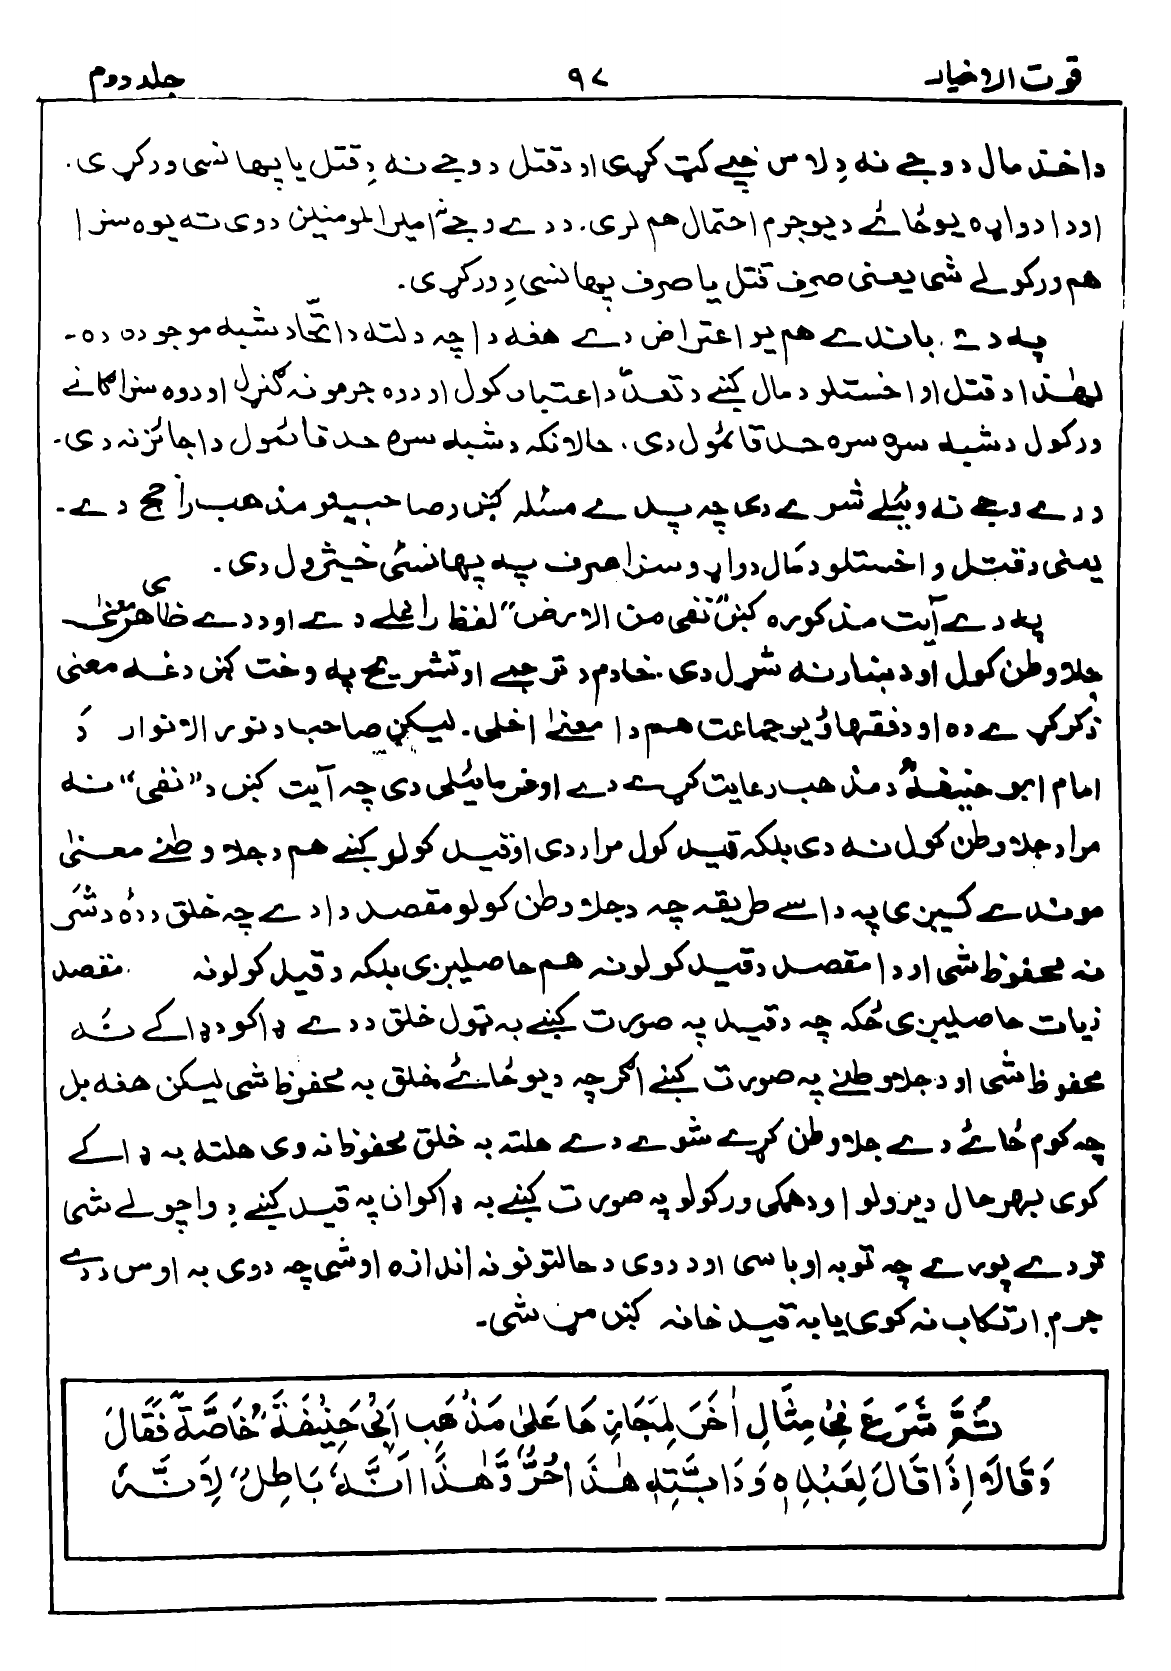 قوت الاخیار ۹۷ جلد دوم
داخذ مال د وجے نه دِ لاس خپے کټ کړی او د قتل د وجے نه دِ قتل یا پهانسی ورکړی.
او دا دواړه یو ځائے د یو جرم احتمال هم لری. د دے وجے نه امیر المومنین دوی ته یوه سزا
هم ورکولے شی یعنی صرف قتل یا صرف پهانسی دِ ورکړی.
په دے باندے هم یو اعتراض دے هغه دا چه دلته د اتحّاد شبه موجوده ده۔
لهٰذا د قتل او اخستلو د مال کښے د تعدّد اعتبار کول او دوه جرمونه ګنړل او دوه سزاګانے
ورکول د شبه سره سره حد قائمول دی. حالانکه د شبه سره حد قائمول دا جائز نه دی۔
د دے وجے نه وئیلے شوے دی چه په دے مسئله کښ د صاحبینو مذهب راجح دے۔
یعنی د قتل و اخستلو د مال دواړو سزا صرف په پهانسئ خیژول دی.
په دے آیت مذکوره کښ "نفی من الارض" لفظ راغلے دے او د دے ظاهری معنیٰ
جلاوطن کول او د ښار نه شړل دی. خادم د ترجمے او تشریح په وخت کښ دغه معنی
ذکر کړے ده او د فقهاؤ یو جماعت هم دا معنیٰ اخلی. لیکن صاحب د نور الانوار دَ
امام ابو حنیفهؒ د مذهب رعایت کړے دے او فرمائیلی دی چه آیت کښ د "نفی" نه
مراد جلاوطن کول نه دی بلکه قید کول مراد دی او قید کولو کښے هم د جلاوطنے معنیٰ
موندے کیږی په داسے طریقه چه د جلاوطن کولو مقصد دا دے چه خلق د ده د شَر
نه محفوظ شی او دا مقصد د قید کولو نه هم حاصلیږی بلکه د قید کولو نه مقصد
زیات حاصلیږی ځکه چه د قید په صورت کښے به ټول خلق د دے ډاکو د ډاکے نه
محفوظ شی او د جلاوطنے په صورت کښے اگرچه د یو ځائے خلق به محفوظ شی لیکن هغه بل
چه کوم ځائے دے جلاوطن کړے شوے دے هلته به خلق محفوظ نه وی هلته به ډاکے
کوی بهر حال د یرولو او دهمکی ورکولو په صورت کښے به ډاکوان په قید کښے دِ واچولے شی
تر دے پورے چه توبه اوباسی او د دوی د حالتونو نه اندازه اوشی چه دوی به اوس د دے
جرم ارتکاب نه کوی یا به قید خانه کښ مړه شی۔
ثُمَّ شَرَعَ فِیْ مِثَالٍ اٰخَرَ لِمَجَازِ هَا عَلیٰ مَذْهَبِ اَبِیْ حَنِیْفَةَؒ خَاصَّةً فَقَالَ
وَقَالَا اِذَا قَالَ لِعَبْدِهٖ وَ دَابَّتِهٖ هٰذَا حُرٌّ وَّهٰذَا اَنَّهٗ بَاطِلٌ لِاَنَّهٗ